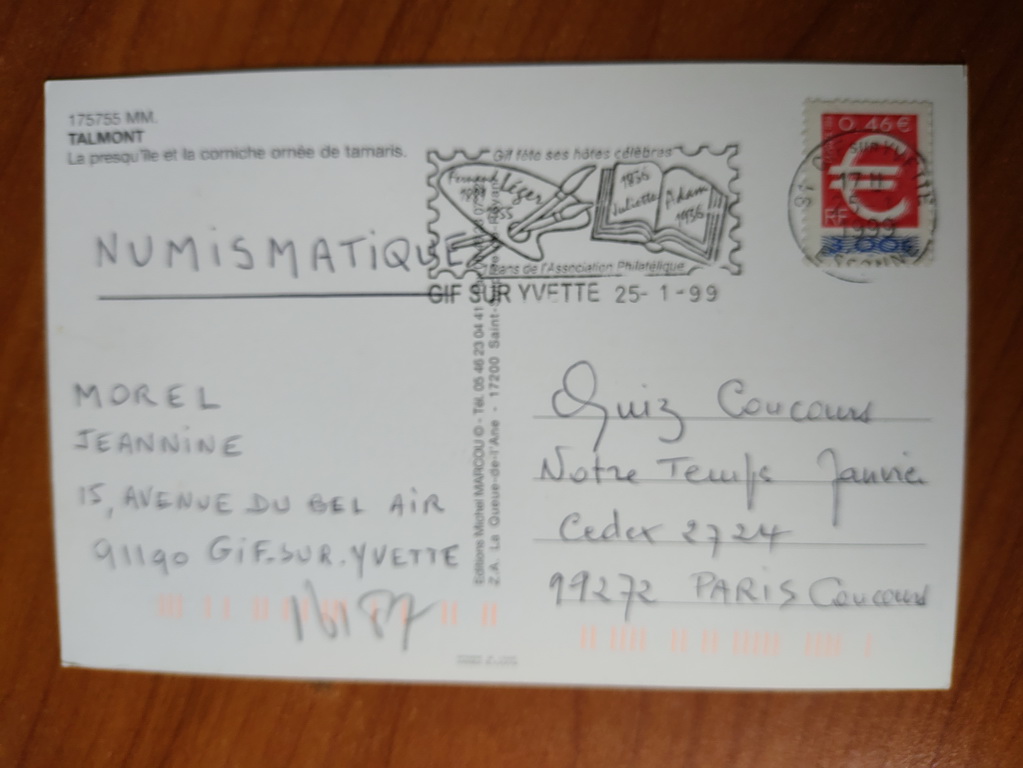 175755 MM.
TALMONT
La presqu'île et la corniche ornée de tamaris.
Gif fête ses hôtes célèbres
Fernand Léger
1881
1955
1836
Juliette Adam
1936
ans de l'Association Philatélique
GIF SUR YVETTE 25-1-99
0,46 €
RF
3,00F
17 H
1999
NUMISMATIQUE
MOREL
JEANNINE
15, AVENUE DU BEL AIR
91190 GIF.SUR.YVETTE
16187
Editions Michel MARCOU © - Tél. 05 46 23 04 41
Z.A. La Queue-de-l'Ane - 17200 Saint-
Quiz Concours
Notre Temps Janvier
Cedex 2724
99272 PARIS Concours